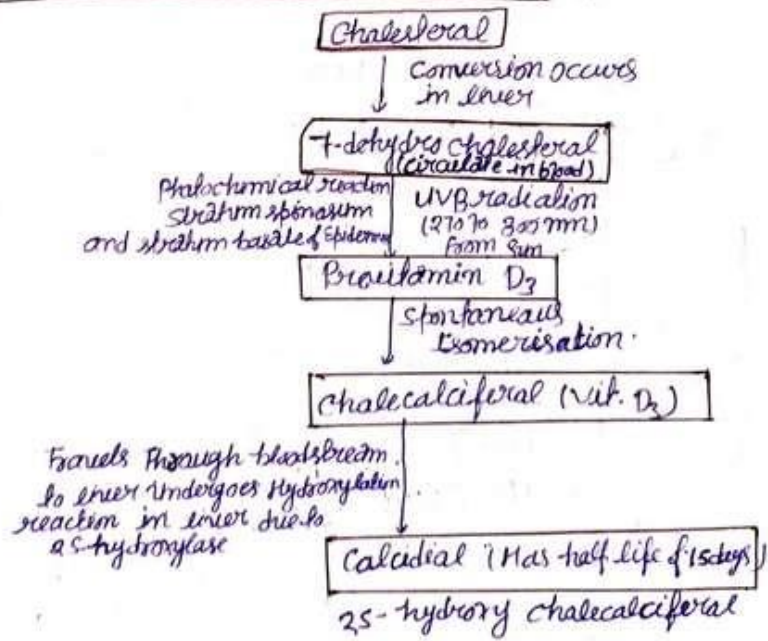 Cholesterol
Conversion occurs
in liver
7-dehydro cholesterol
(circulate in blood)
Photochemical reaction
stratum spinosum
and stratum basale of Epidermis
UVB radiation
(270 to 300 nm)
from sun
Previtamin D3
spontaneous
Isomerisation.
Cholecalciferol (Vit. D3)
Travels Through bloodstream
to liver Undergoes Hydroxylation
reaction in liver due to
25-hydroxylase
Calcidiol (Has half life of 15 days)
25-hydroxy cholecalciferol